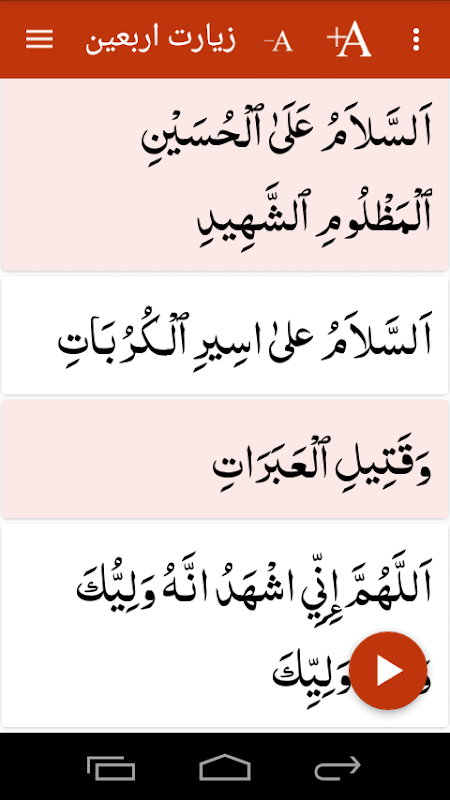 زیارت اربعین
-A
+A
اَلسَّلاَمُ عَلَىٰ ٱلْحُسَيْنِ
ٱلْمَظْلُومِ ٱلشَّهِيدِ
اَلسَّلاَمُ علىٰ اسِيرِ ٱلْكُرُبَاتِ
وَقَتِيلِ ٱلْعَبَرَاتِ
اَللَّهُمَّ إِنِّي اشْهَدُ انَّهُ وَلِيُّكَ
وَلِيِّكَ